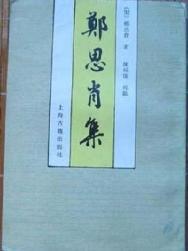 鄭思肖集
[宋]鄭思肖 著
陳福康 校點
上海古籍出版社